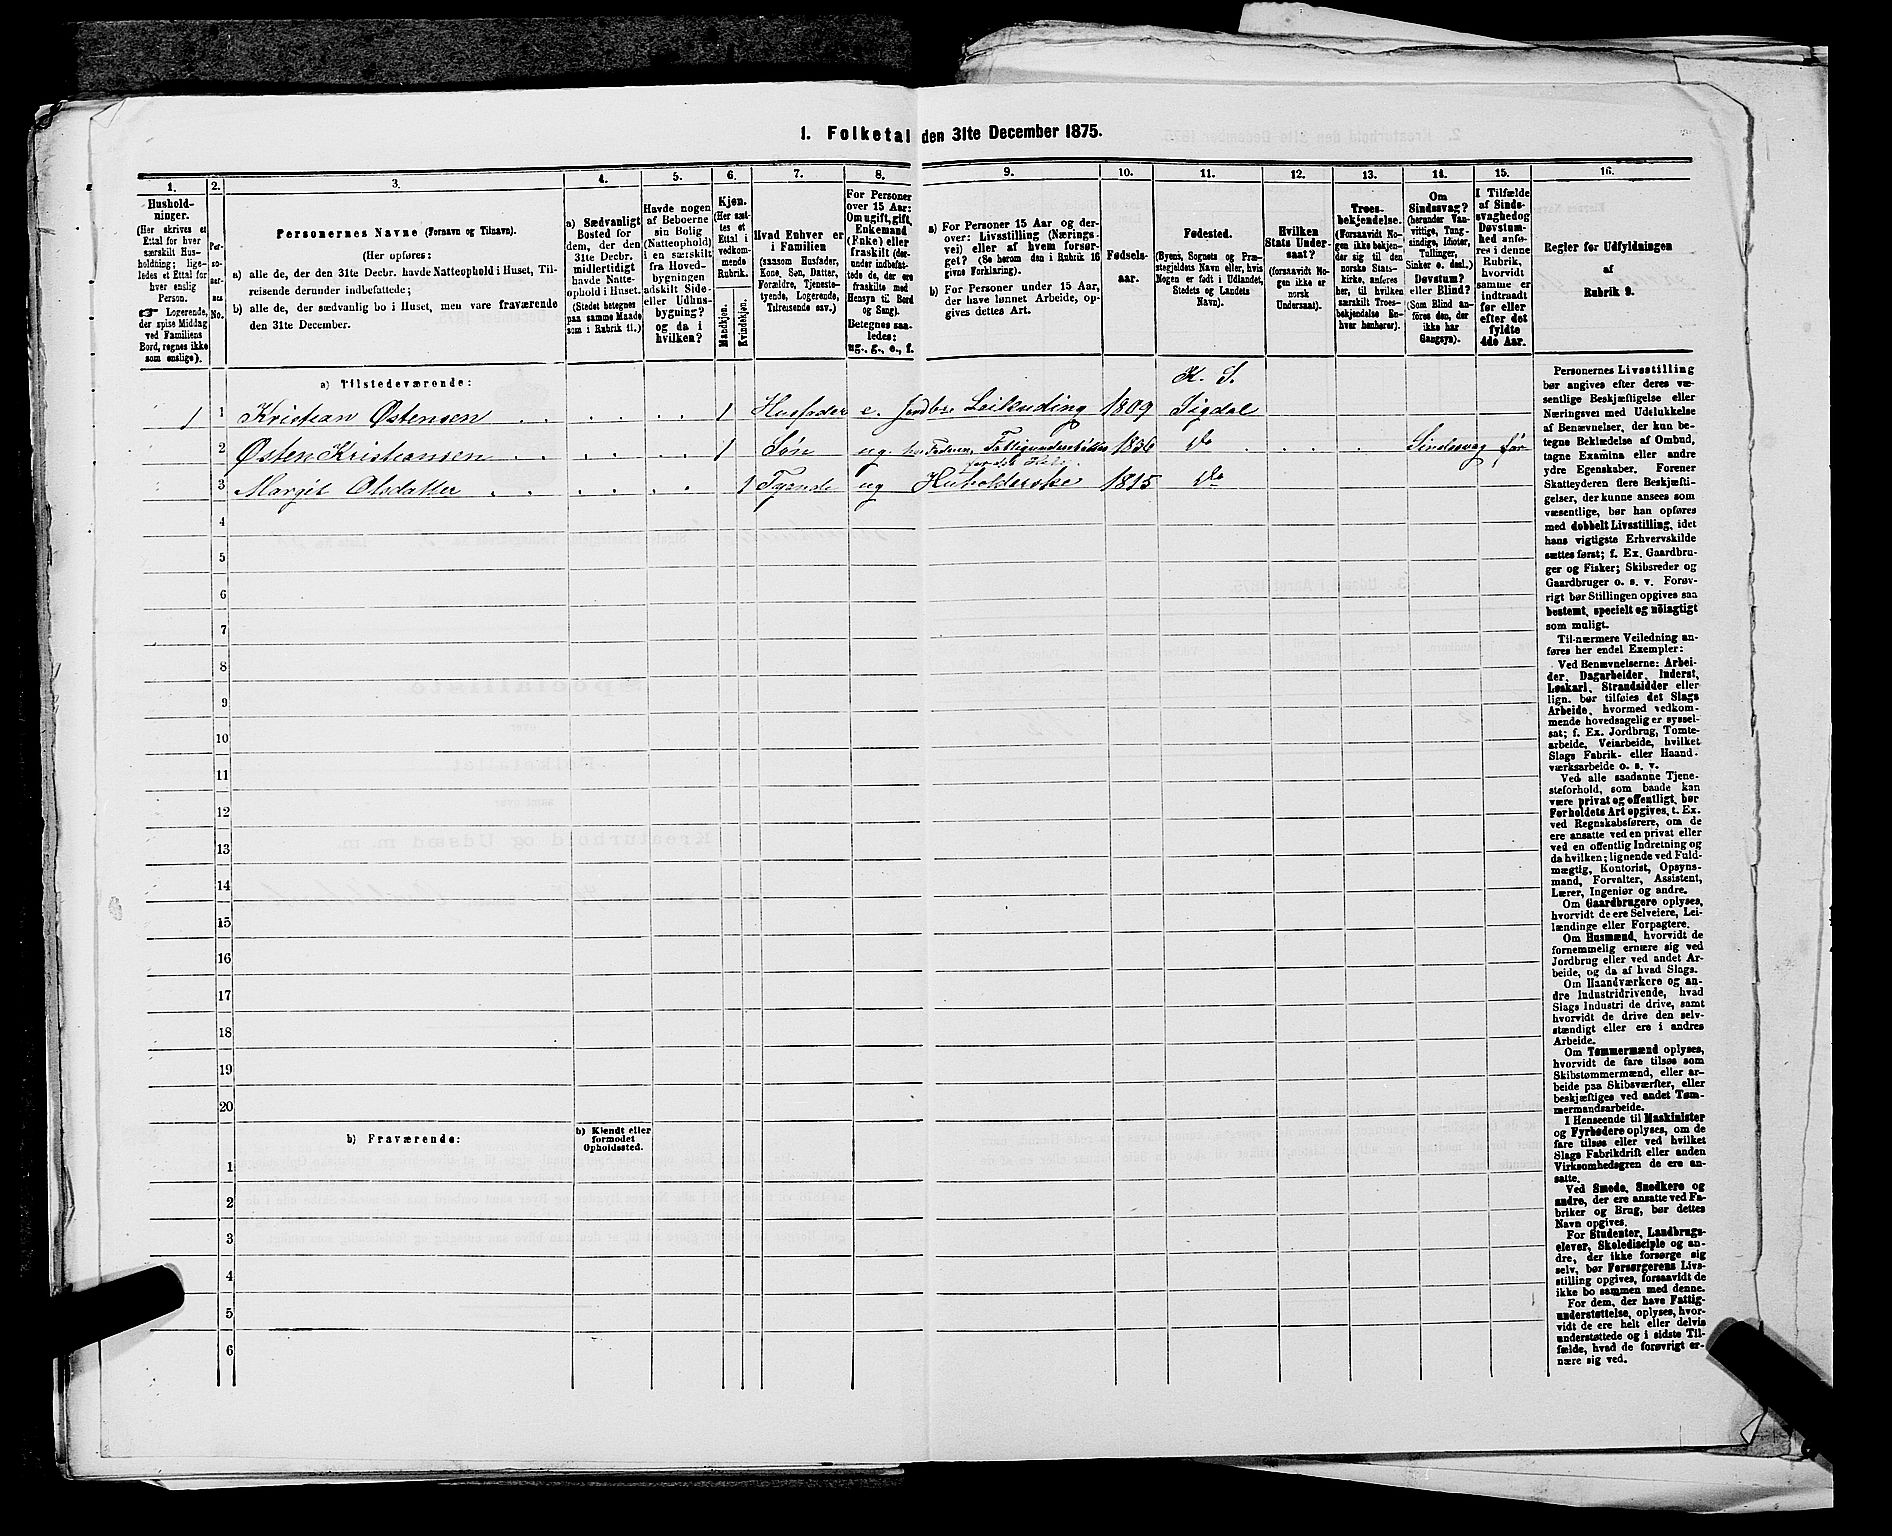 1. Folketal den 31te December 1875.
1. 2. 3. 4. 5. 6. 7. 8. 9. 10. 11. 12. 13. 14. 15. 16.
Hushold-
ninger.
(Her skrives et
Ettal for hver
særskilt Hus-
holdning; lige-
ledes et Ettal for
hver enslig
Person.
☞ Logerende,
der spise Middag
ved Familiens
Bord, regnes ikke
som enslige).
Per-
so-
ner-
nes
No.
Personernes Navne (Fornavn og Tilnavn).
(Her opføres:
a) alle de, der den 31te Decbr. havde Natteophold i Huset, Til-
reisende derunder indbefattede;
b) alle de, der sædvanlig bo i Huset, men vare fraværende
den 31te December.
a) Sædvanligt
Bosted for
dem, der den
31te Decbr.
midlertidigt
havde Natte-
ophold i Huset.
(Stedet betegnes
paa samme Maade
som i Rubrik 11.)
Havde nogen
af Beboerne
sin Bolig
(Natteophold)
i en særskilt
fra Hoved-
bygningen
adskilt Side-
eller Udhus-
bygning?
og da i
hvilken?
Kjøn.
(Her sæt-
tes et
Ettal i
vedkom-
mende
Rubrik.
Mandkjøn.
Kvindekjøn.
Hvad Enhver er
i Familien
(saasom Husfader,
Kone, Søn, Datter,
Forældre, Tjeneste-
tyende, Logerende,
Tilreisende osv.)
For Personer
over 15 Aar:
Om ugift, gift,
Enkemand
(Enke) eller
fraskilt (der-
under indbefat-
tede de, der ere
fraskilte med
Hensyn til Bord
og Seng).
Betegnes saa-
ledes:
ug., g., e., f.
a) For Personer 15 Aar og der-
over: Livsstilling (Nærings-
vei) eller af hvem forsør-
get? (Se herom den i Rubrik 16
givne Forklaring).
b) For Personer under 15 Aar,
der have lønnet Arbeide, op-
gives dettes Art.
Fødsels-
aar.
Fødested.
(Byens, Sognets og Præ-
stegjeldets Navn eller, hvis
Nogen er født i Udlandet,
Stedets og Landets
Navn).
Hvilken
Stats Under-
saat?
(forsaavidt No-
gen ikke er
norsk
Undersaat).
Troes-
bekjendelse.
(Forsaavidt No-
gen ikke bekjen-
der sig til den
norske Stats-
kirke, anføres
her, til hvilken
særskilt Troes-
bekjendelse En-
hver henhører).
Om
Sindssvag?
(herunder Van-
vittige, Tung-
sindige, Idioter,
Tullinger,
Sinker o. desl.)
Døvstum?
eller Blind?
(Som Blind an-
føres den, der
ikke har
Gangsyn).
I Tilfælde
af Sinds-
svaghed og
Døvstum-
hed anfø-
res i denne
Rubrik,
hvorvidt
samme er
indtraadt
før eller
efter det
fyldte
4de Aar.
Regler for Udfyldningen
af
Rubrik 9.
a) Tilstedeværende:
K. S.
1 1 Kristian Østensen 1 Husfader e. 1809 Sigdal
2 Østen Kristiansen 1 Søn ug. 1836 do Sindssvag før
3 Margit Olsdatter 1 Tyende ug 1815 do
4
5
6
7
8
9
10
11
12
13
14
15
16
17
18
19
20
b) Fraværende:
b) Kjendt eller
formodet
Opholdssted.
1
2
3
4
5
6
Personernes Livsstilling
bør angives efter deres væ-
sentlige Beskjæftigelse eller
Næringsvei med Udelukkelse
af Benævnelser, der kun be-
tegne Beklædelse af Ombud,
tagne Examina eller andre
ydre Egenskaber. Forener
Skatteyderen flere Beskjæfti-
gelser, der kunne ansees som
væsentlige, bør han opføres
med dobbelt Livsstilling, idet
hans vigtigste Erhvervskilde
sættes først; f. Ex. Gaardbru-
ger og Fisker; Skibsreder og
Gaardbruger o. s. v. Forøv-
rigt bør Stillingen opgives saa
bestemt, specielt og nøiagtigt
som muligt.
Til nærmere Veiledning an-
føres her endel Exempler:
Ved Benævnelserne: Arbei-
der, Dagarbeider, Inderst,
Løskarl, Strandsidder eller
lign. bør tilføies det Slags
Arbeide, hvormed vedkom-
mende hovedsagelig er syssel-
sat; f. Ex. Jordbrug, Tomte-
arbeide, Veiarbeide, hvilket
Slags Fabrik- eller Haand-
værksarbeide o. s. v.
Ved alle saadanne Tjene-
steforhold, som baade kan
være privat og offentligt, bør
Forholdets Art opgives, t. Ex.
ved Regnskabsførere, om de
ere ansatte ved en privat eller
ved en offentlig Indretning og
da hvilken; lignende ved Fuld-
mægtig, Kontorist, Opsyns-
mand, Forvalter, Assistent,
Lærer, Ingeniør og andre.
Om Gaardbrugere oplyses,
hvorvidt de ere Selveiere, Lei-
lændinge eller Forpagtere.
Om Husmænd, hvorvidt de
fornemmelig ernære sig ved
Jordbrug eller ved andet Ar-
beide, og da af hvad Slags.
Om Haandværkere og an-
dre Industridrivende, hvad
Slags Industri de drive, samt
hvorvidt de drive den selv-
stændigt eller ere i andres
Arbeide.
Om Tømmermænd oplyses,
hvorvidt de fare tilsøs som
Skibstømmermænd, eller ar-
beide paa Skibsværfter, eller
beskjæftiges ved andet Tøm-
mermandsarbeide.
I Henseende til Maskinister
og Fyrbødere oplyses, om de
fare tilsøs eller ved hvilket
Slags Fabrikdrift eller anden
Virksomhedsgren de ere an-
satte.
Ved Smede, Snedkere og
andre, der ere ansatte ved Fa-
briker og Brug, bør dettes
Navn opgives.
For Studenter, Landbrugs-
elever, Skoledisciple og an-
dre, der ikke forsørge sig
selv, bør Forsørgerens Livs-
stilling opgives, forsaavidt de
ikke bo sammen med denne.
For dem, der have Fattig-
understøttelse, oplyses, hvor-
vidt de ere helt eller delvis
understøttede og i sidste Til-
fælde, hvad de forøvrigt er-
nære sig ved.